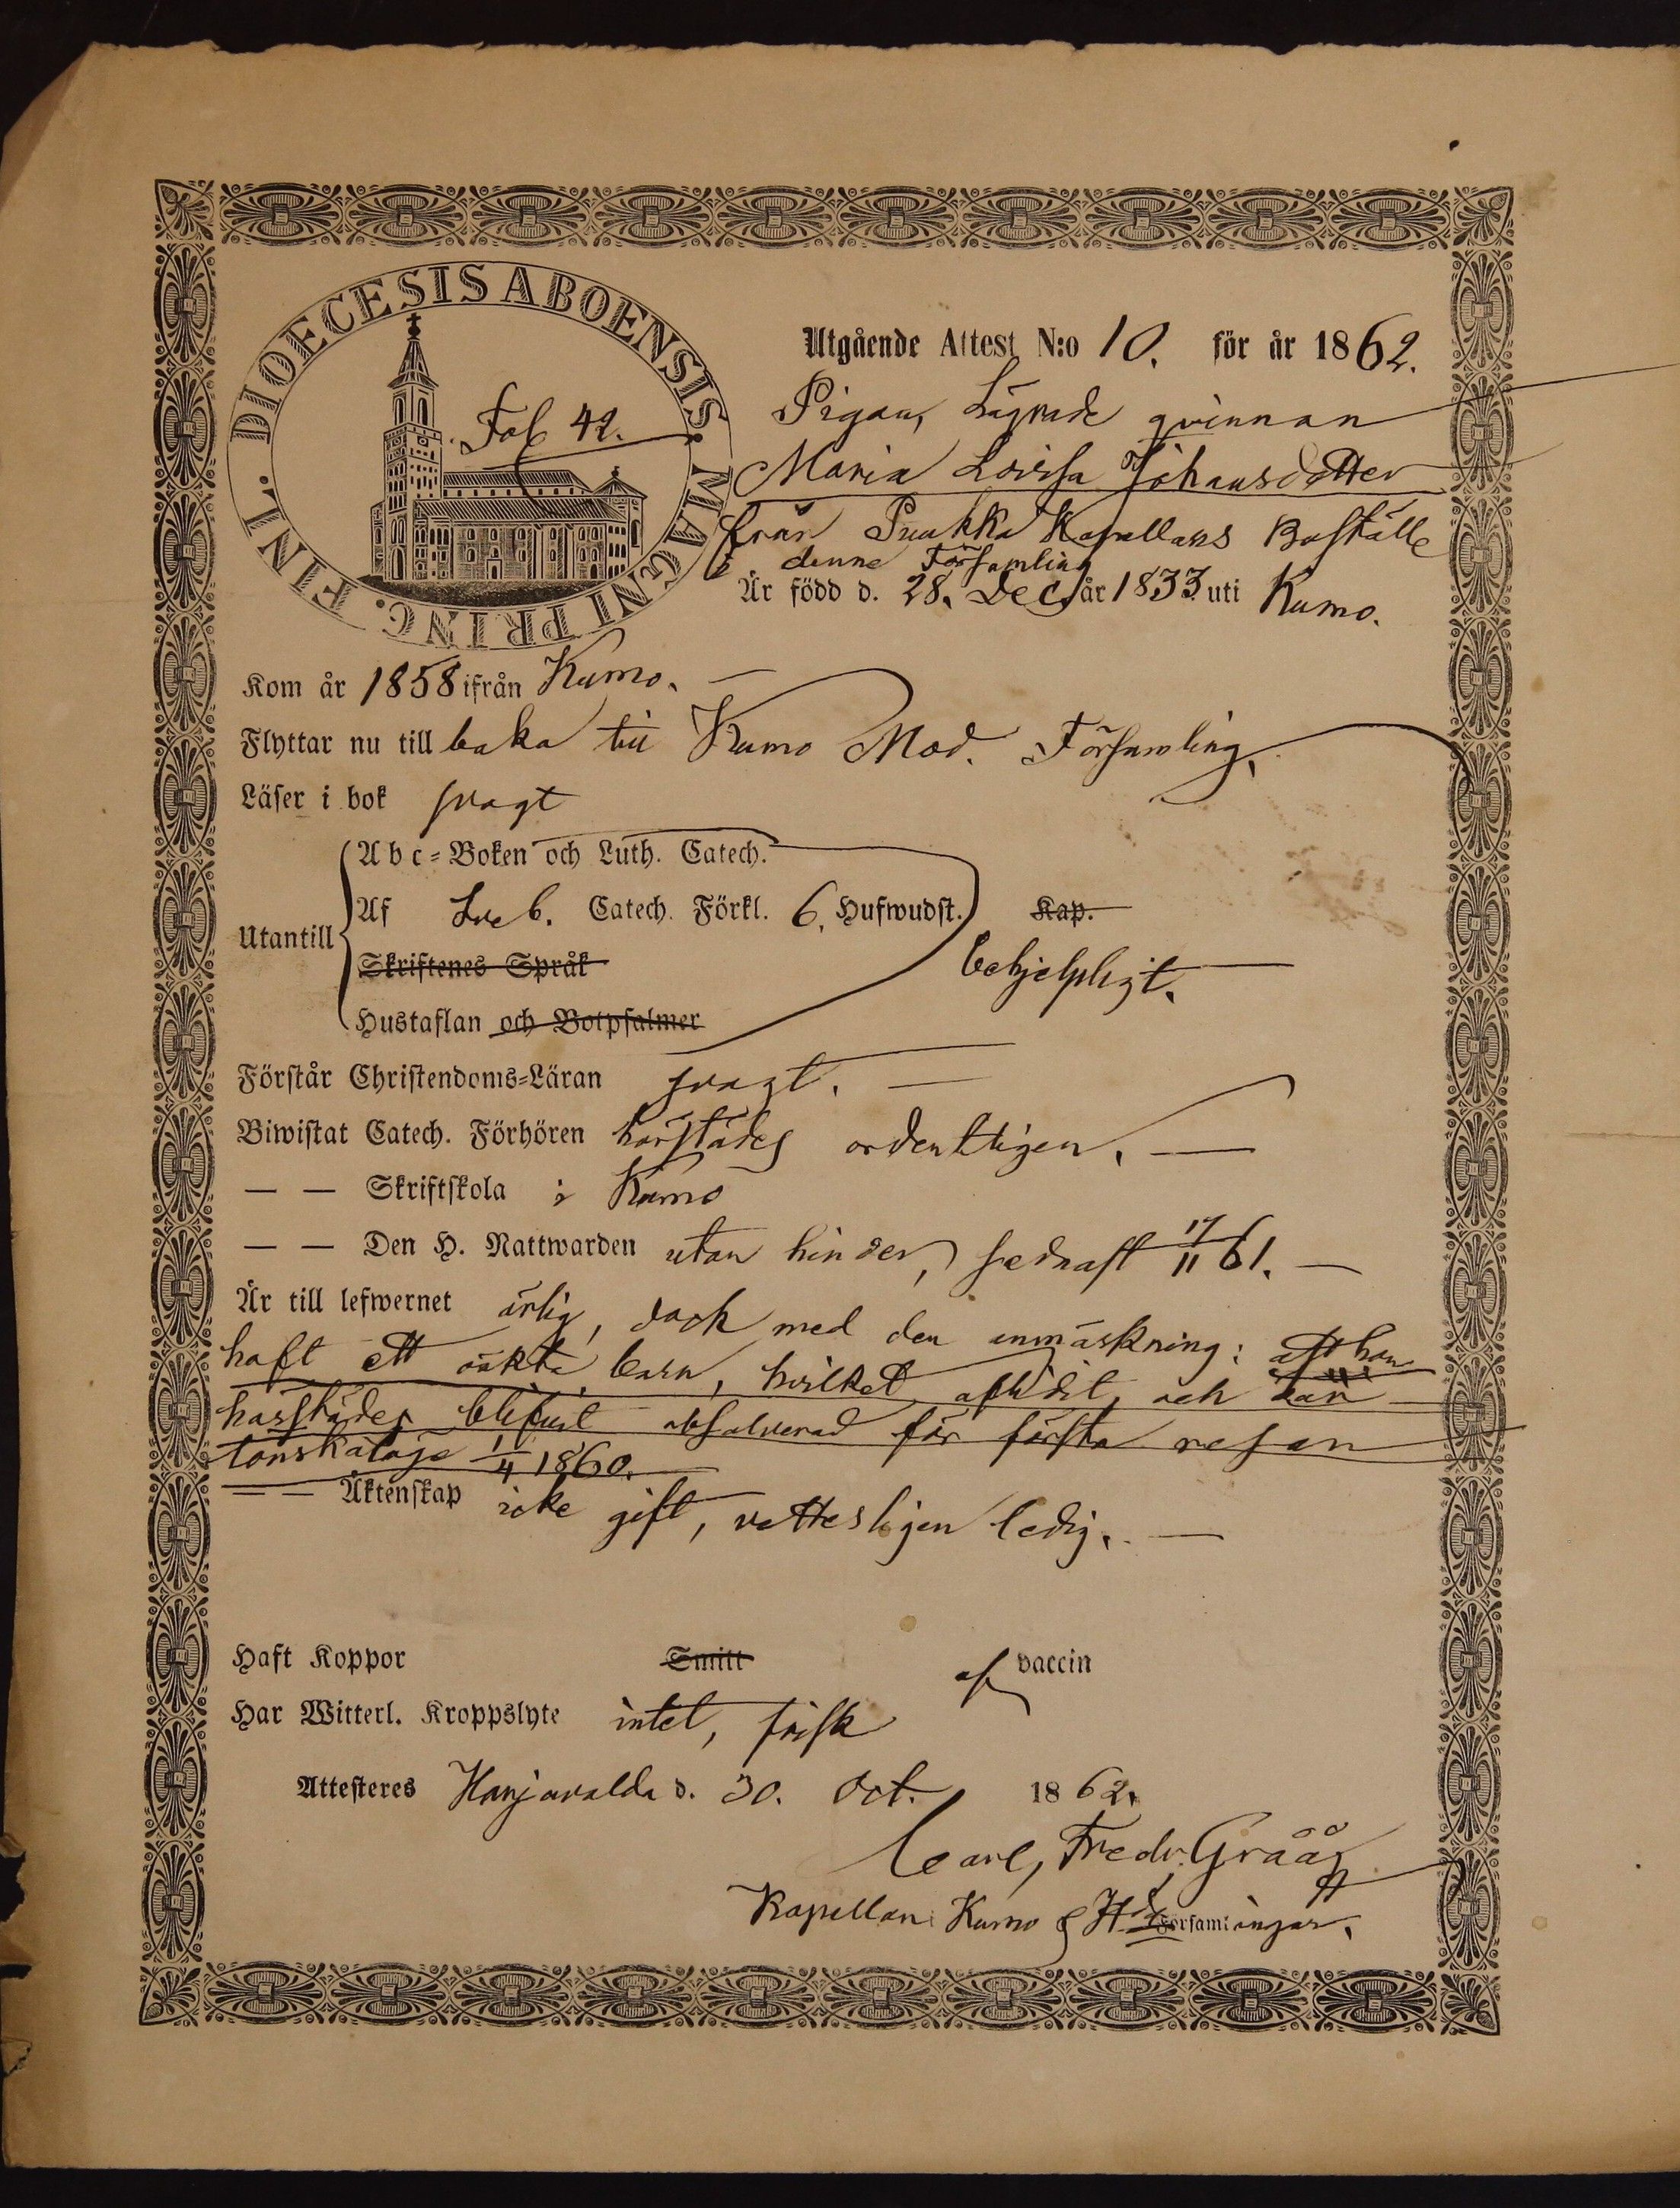 DIOECESIS ABOENSIS. MAGNI PRINC. FINL.
Fol 42.
Utgående Attest N:o 10. för år 1862.
Pigan, Lägrade qvinnan
Maria Lovisa Johansdotter
från Kapellans Boställe
i denne Församling
Är född d. 28. Dec. år 1833. uti Kumo.
Kom år 1858 ifrån Kumo.
Flyttar nu till baka till Kumo Mod. Församling.
Läser i bok svagt
Abc-Boken och Luth. Catech.
Utantill Af Sveb. Catech. Förkl. 6. Hufwudst. Kap.
Skriftenes Språk behjelpligt.
Hustaflan och Botpsalmer
Förstår Christendoms-Läran svagt.
Biwistat Catech. Förhören härstädes ordentligen.
— — Skriftskola i Kumo
— — Den H. Nattwarden utan hinder, sednast 17/11 61.
Är till lefwernet ärlig, dock med den anmärkning: att hon
haft ett oäkta barn, hvilket aflidit, och
härstädes blifvit absolverad för första resan
lönskaläge 1/4 1860.
— — Äktenskap icke gift, rättesligen ledig.
Haft Koppor Smitt af vaccin
Har Witterl. Kroppslyte intet, frisk
Attesteres Harjavalda d. 30. Oct. 1862.
Carl Fredr. Grääg
Kapellan i Kumo & Hda Församlingar.